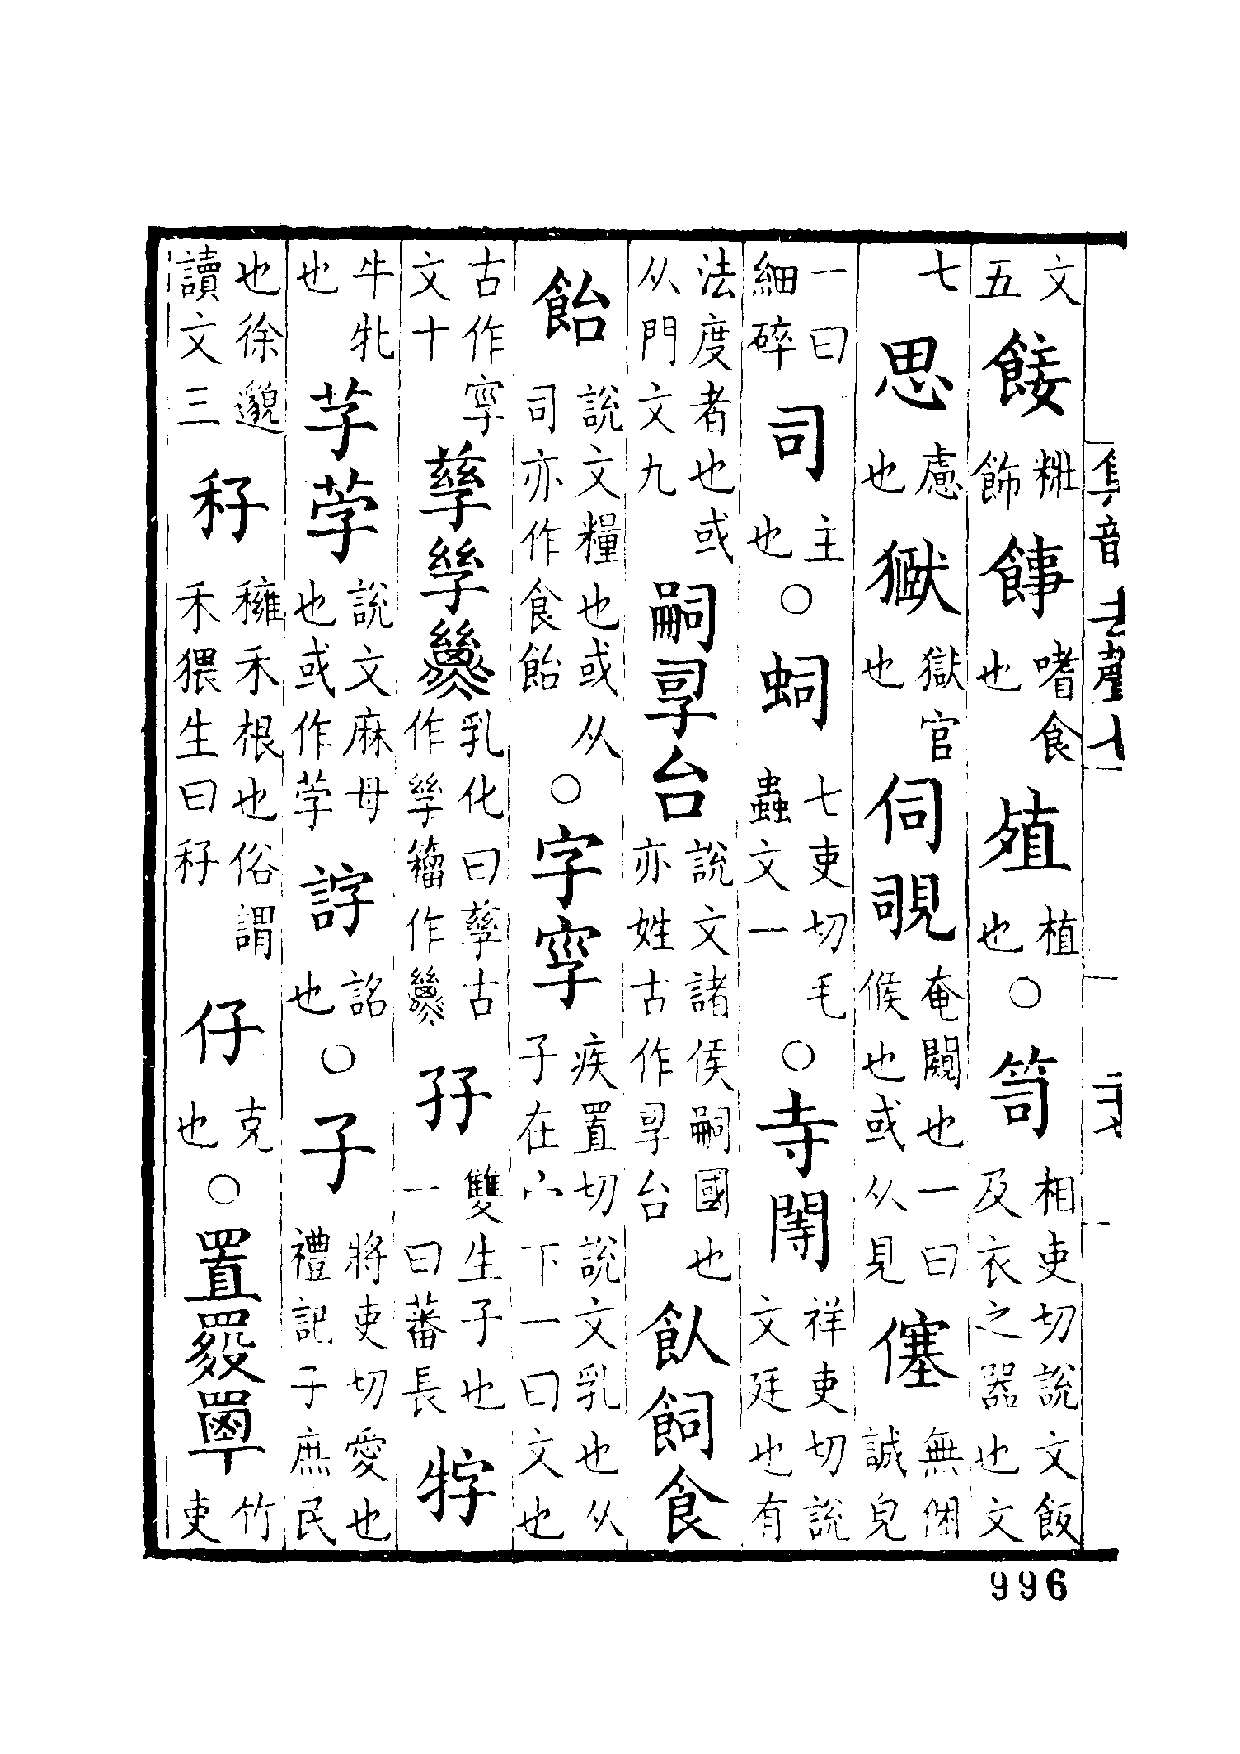 集音去聲七
文五飾嗜食也殖植也○笥相吏切說文飯及衣之器也文
七思慮也㺇獄官也伺覗奄闚也一曰候也或从見僿無悃誠皃
一曰細碎司主也○七吏切毛蟲文一○寺祥吏切說文廷也有
法度者也或从門文九嗣孠台說文諸侯嗣國也亦姓古作孠台飤飼食
飴說文糧也或从司亦作食飴○字㝒疾置切說文乳也从子在宀下一曰文也
古作㝒文十孳孶乳化曰孳古作孶籀作孖雙生子也一曰蕃長牸
牛牝也芓茡說文麻母也或作茡詺也○子將吏切愛也禮記子庶民
也徐邈讀文三秄禾根也俗謂禾猥生曰秄仔克也○置竹吏
996